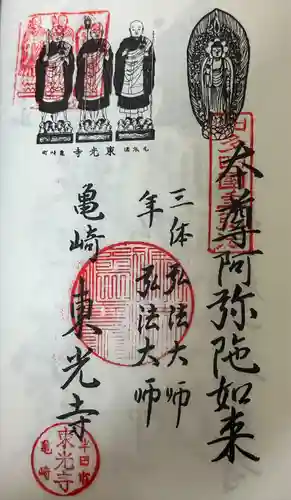 本尊阿弥陀如来
三体弘法大師
年弘法大師
亀崎 東光寺
東光寺
半田市
東光寺
亀崎